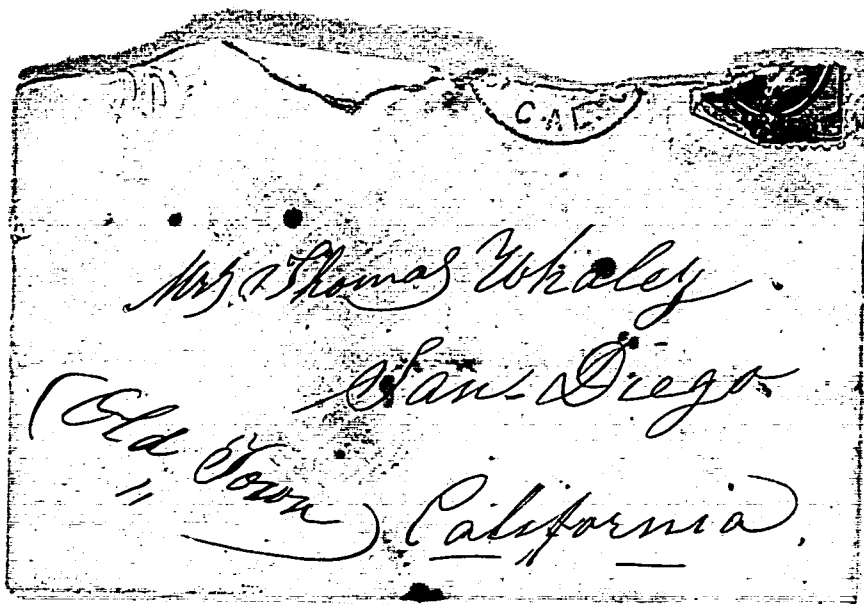 CAL.
Mrs. Thomas Whaley.
San-Diego.
(Old Town)
California.